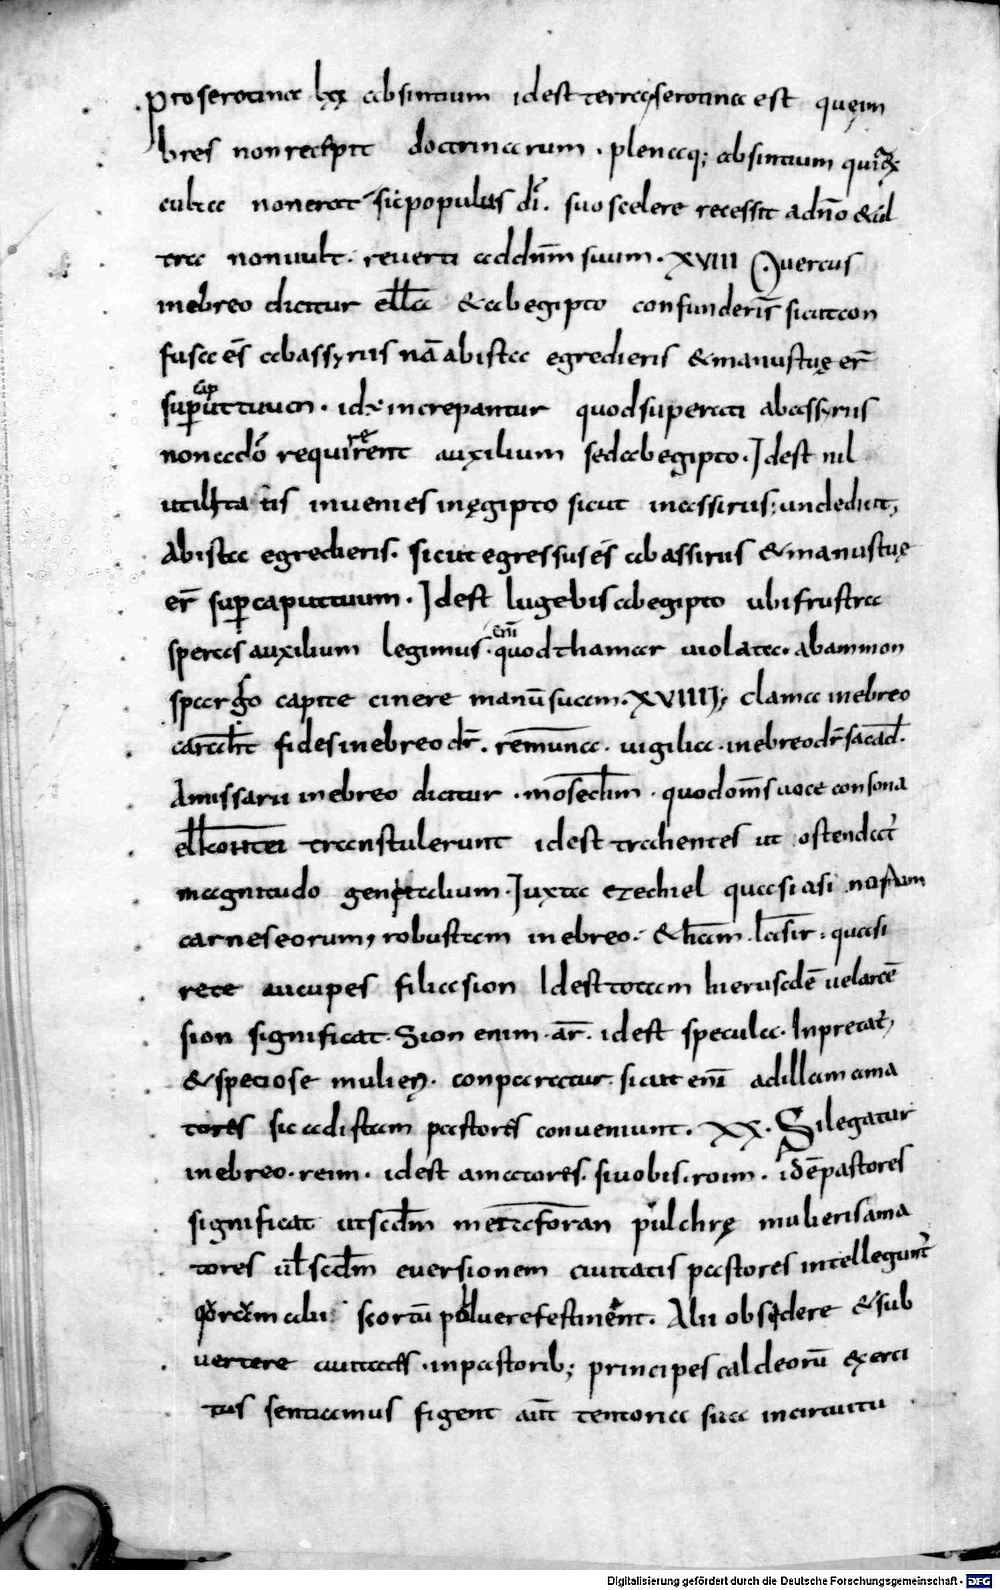 Proserotina lxx absintium idest terra, serotina est quę im
bres non recepit doctrinarum . plenaq; absintium quia
culta non erat sic populus dī . suo scelere recessit ad dn̄o & ul
tra non uult . reuerti ad dn̄m suum . XVIII Quercus
in ebreo dicitur ella & ab egipto confunderis̄ sicut con
fusa es̄ ab assyriis nā ab ista egredieris & manus tuę er̄
sup cap ut tuum . id÷ increpantur quod superati ab assyriis
non a dō requirerent auxilium sed ab egipto . Idest nil
utilitatis inuenies in ęgipto sicut in assirus; unde dicit,
Ab ista egredieris . sicut egressus es̄ ab assirus & manus tuę
er̄ sup caput tuum . Idest lugebis ab egipto ubi frustra
speras auxilium legimus enī quod thamar uiolata . ab ammon
spargo capite cinere manū suam . XVIIII; clama in ebreo
fides in ebreo dr̄ . remuna . uigilia . in ebreo dr̄ sacad .
Amissarii in ebreo dicitur . mosechim . quod om̄s uoce consona
transtulerunt idest trahentes ut ostendat'
magnitudo genitalium . Iuxta ezechiel quasi asinorum
carnes eorum, robustam in ebreo . & ham . lasir . quasi
rete aucupes filia sion Idest totam hierusalē uel arcē
sion significat . Sion enim . ar̄ . idest specula . Inpretat',
& speciose mulieri . conparatur . sicut enī ad illam ama
tores sic ad istam pastores conueniunt . XX . Si legatur
in ebreo . reim . idest amatores . si uobis . roim . idē pastores
significat ut scd̄m metaforan pulchrę mulieris ama
tores ul̄ scd̄m euersionem ciuitatis pastores intellegunt'
alii scortū polluere festinent . Alii obsidere & sub
uertere ciuitates . in pastorib; principes caldeorū exerci
tus sentiamus figent aūt tentoria sua in circuitu
Digitalisierung gefördert durch die Deutsche Forschungsgemeinschaft - DFG